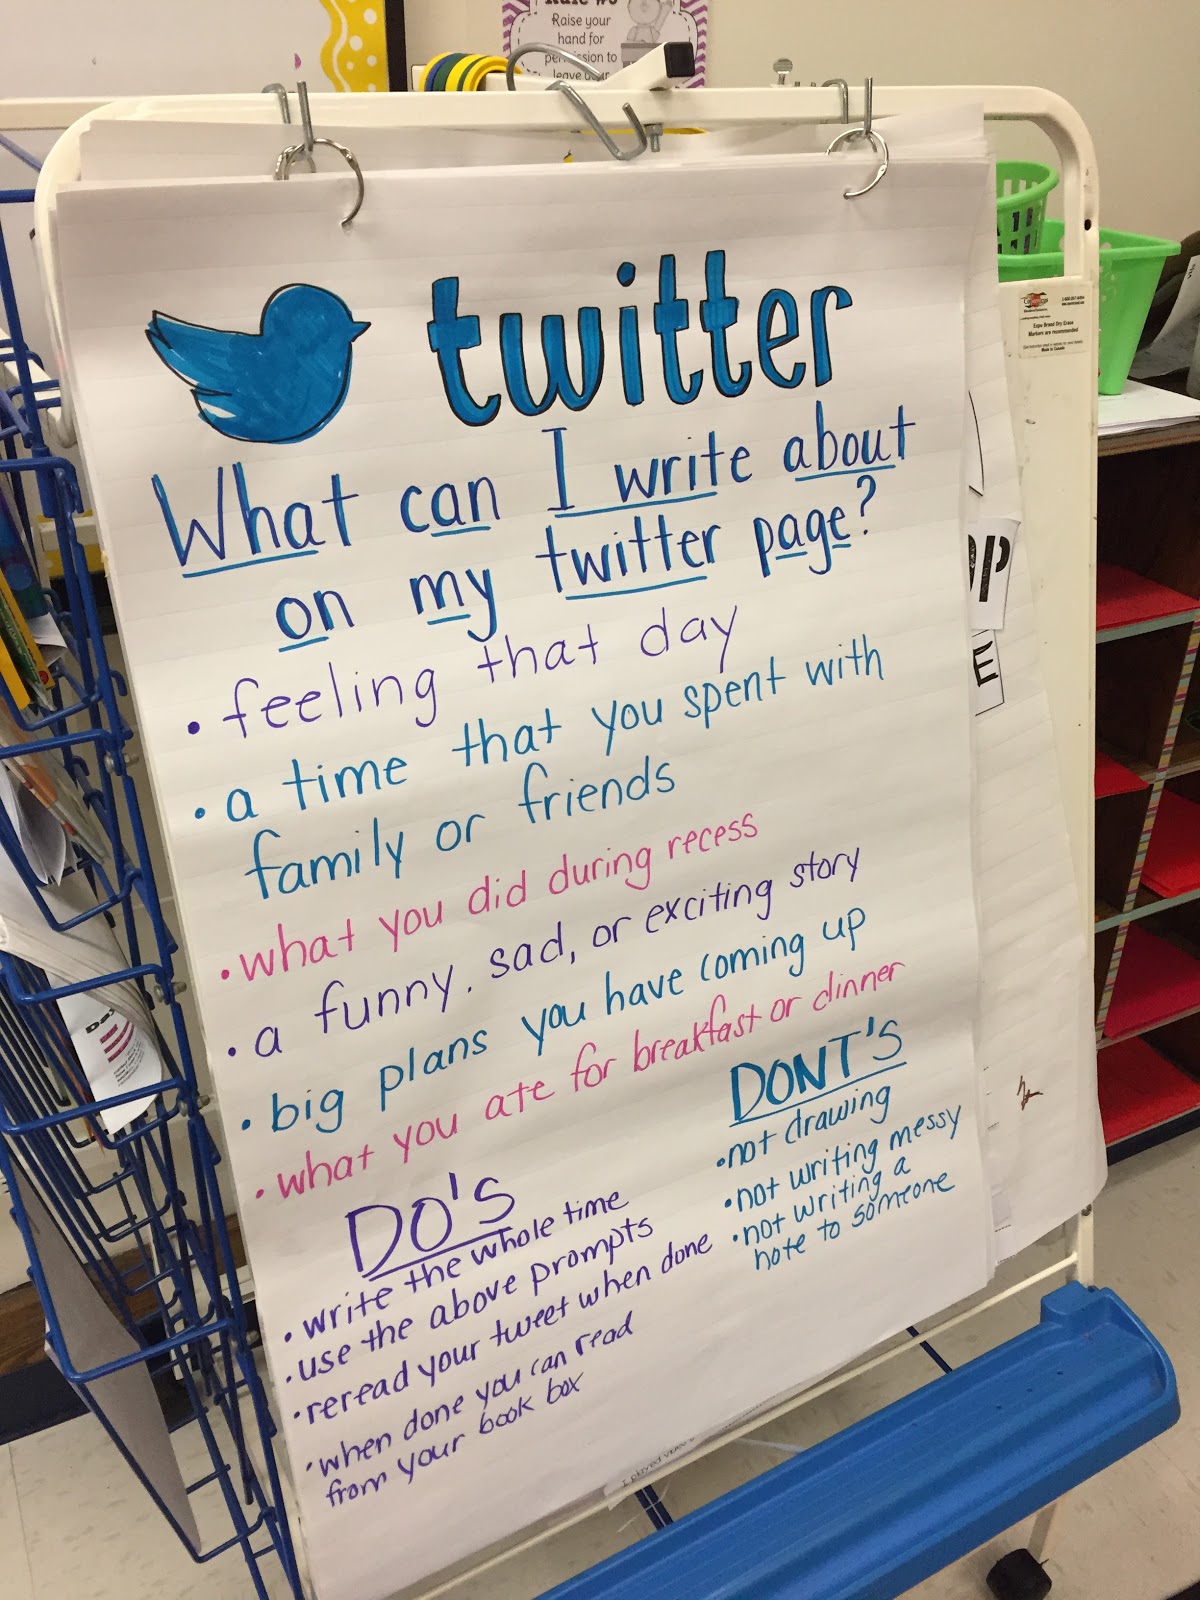 Raise your
hand for
permission to
leave your
twitter
What can I write about
on my twitter page?
• feeling that day
• a time that you spent with
family or friends
• what you did during recess
• a funny, sad, or exciting story
• big plans you have coming up
• what you ate for breakfast or dinner
DO'S
• write the whole time
• use the above prompts
• reread your tweet when done
• when done you can read
from your book box
DONT'S
• not drawing
• not writing messy
• not writing a
note to someone
OP
E
Expo Brand Dry Erase
Markers are recommended
Made in Canada
I played video